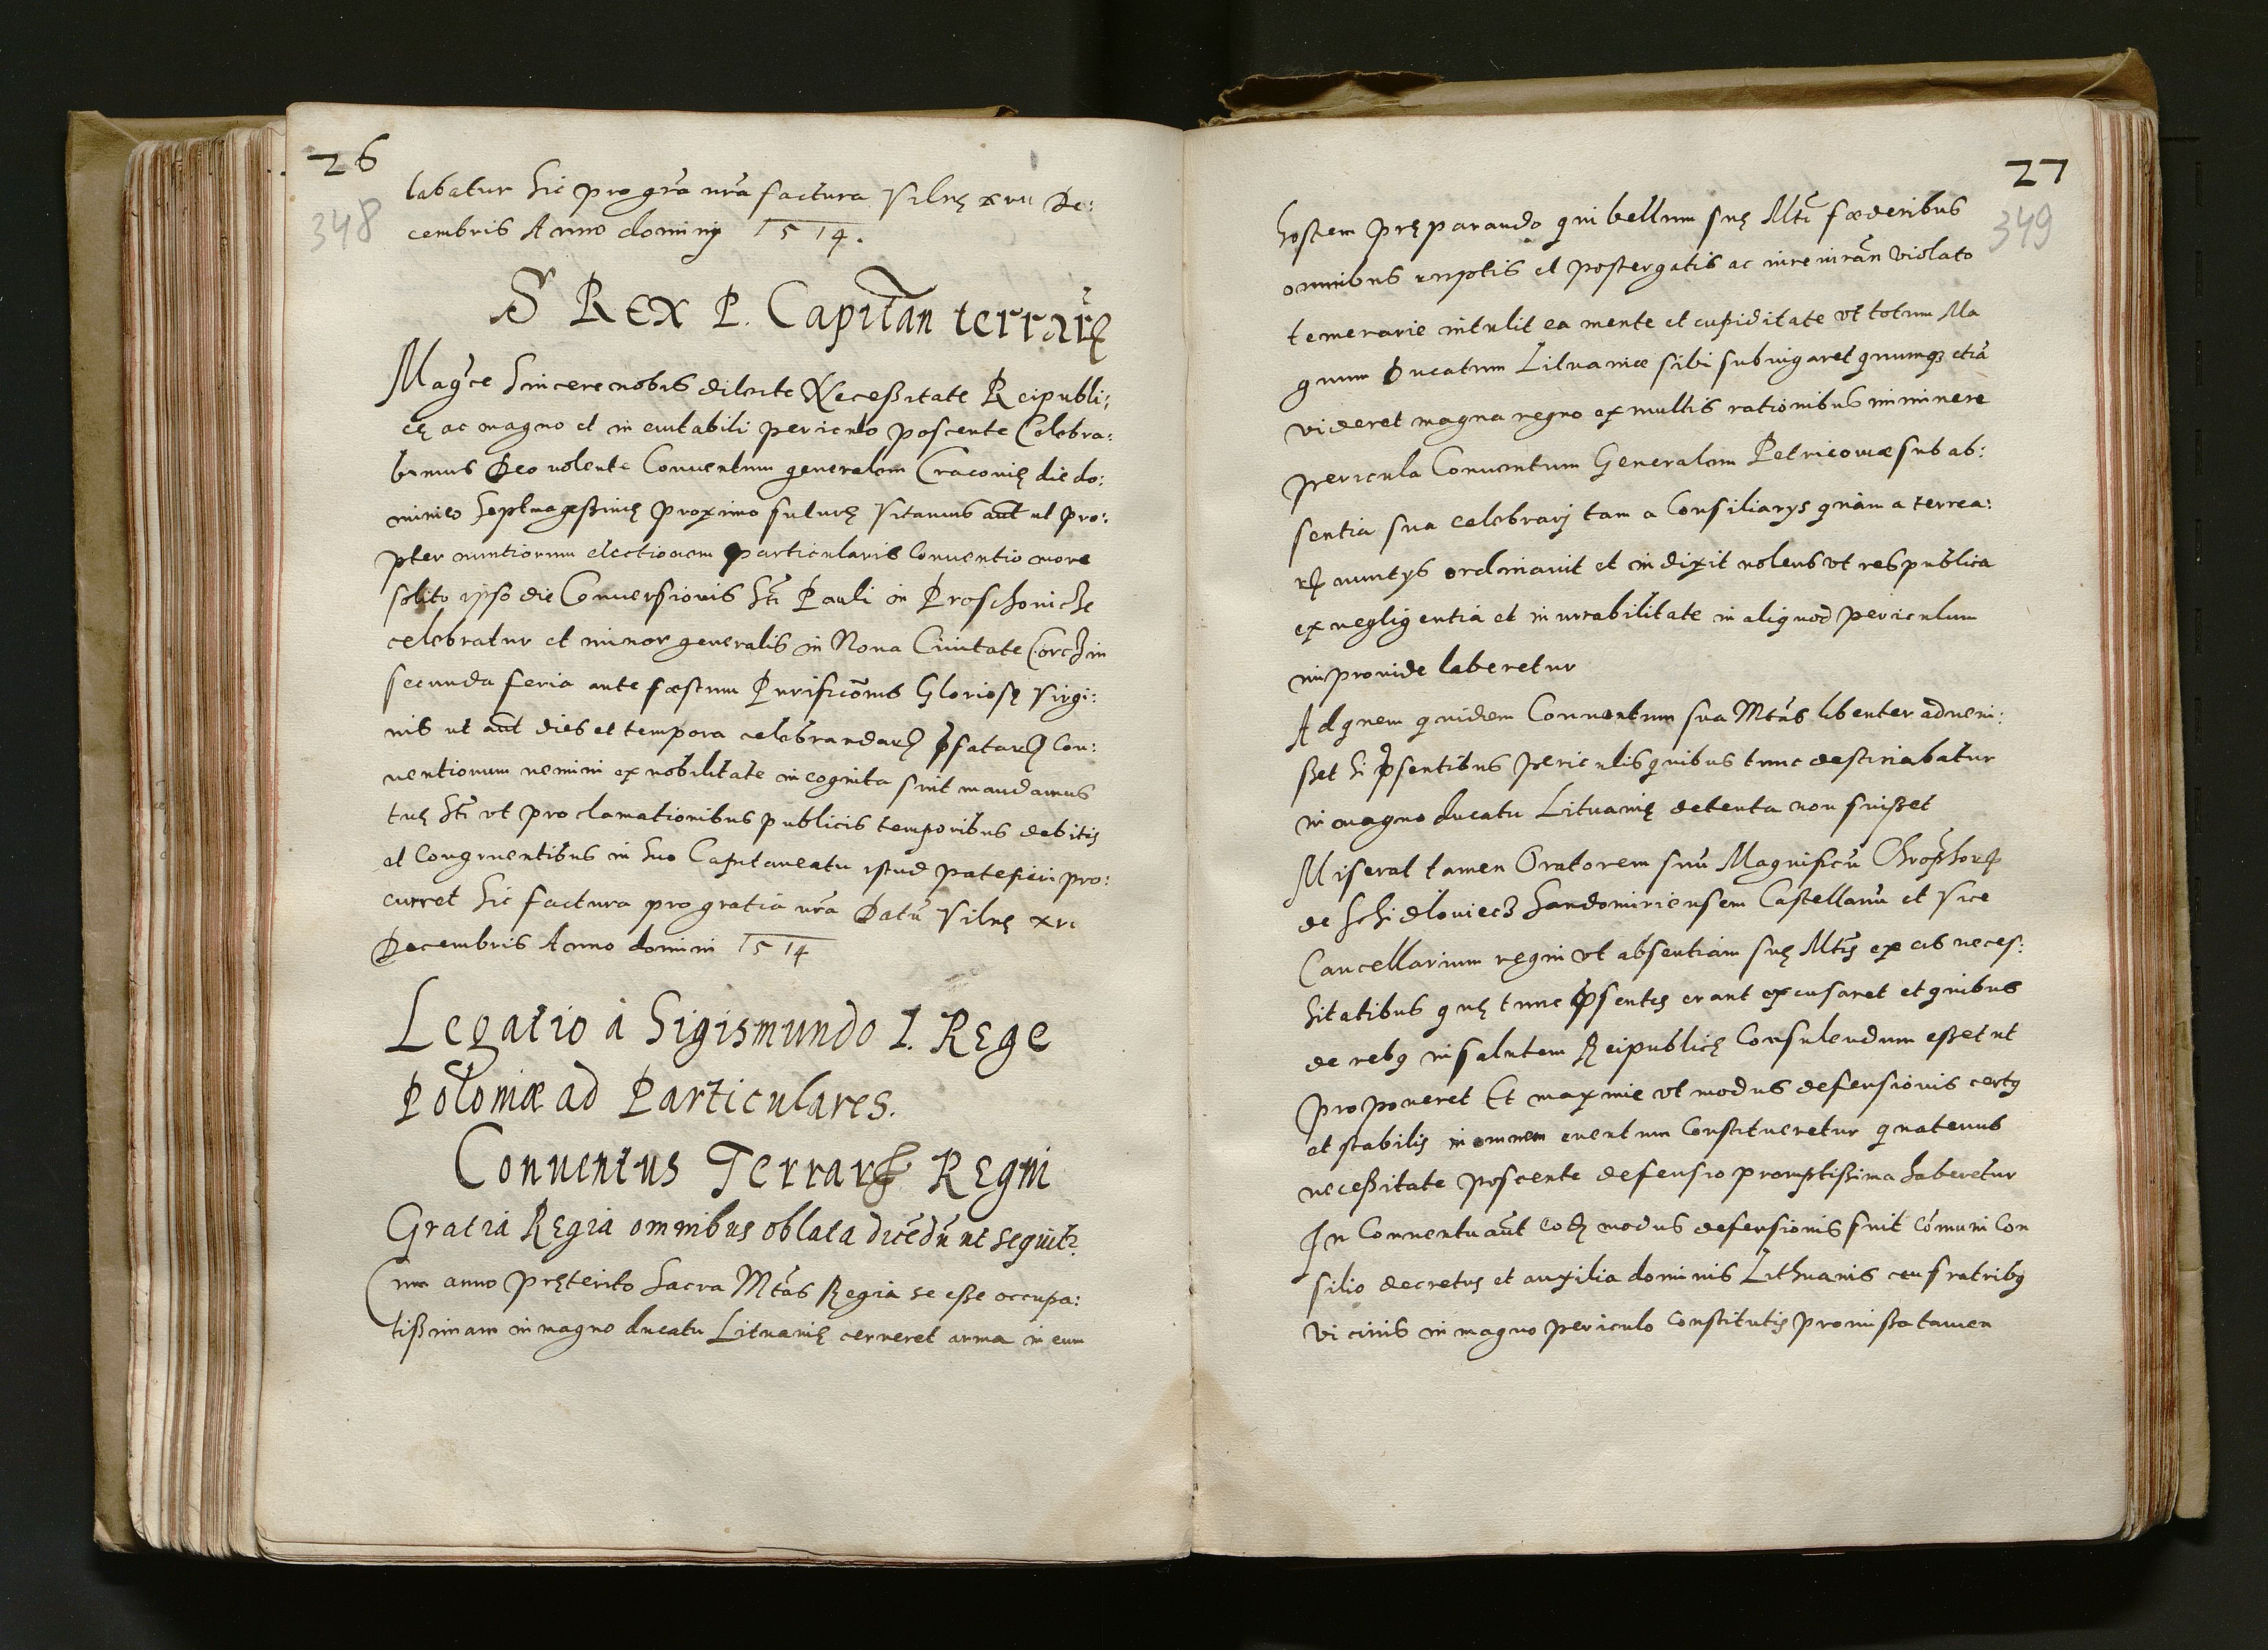 26
348
labatur Sic pro gr̃a nr̃a factura Vilnę xvii De:
cembris Anno dominij 1514.
S REX P. Capitan terrarꝝ
Mag͞ce Sincere nobis dilecte Necessitate Reipubli:
cę ac magno et in euitabili periculo poscente Celebra:
bimus Deo uolente Conuentum generalem Craconię die do:
minico Septuagessimę proximo futurę Vitamus aut̃ ut pro:
pter nuntiorum electionem particularis Conuentio more
solito ipso die Conuersionis Sti Pauli in Proschouicze
celebratur et minor generalis in Noua Ciuitate Corczin
secunda feria ante festum Purificõnis Gloriosę Virgi:
nis ut aut̃ dies et tempora celebrandarꝝ pfatarꝝ Con:
uentionum nemini ex nobilitate incognita sint mandamus
tuę Sti vt proclamationibus publicis temporibus debitis
et Congruentibus in Suo Capitaneatu istud patefieri pro:
curret Sic factura pro gratia nr̃a Datũ Vilnę xvi
Decembris Anno domini 1514
Legatio á Sigismundo I. Rege
Poloniæ ad Particulares.
Conuentus Terrarꝝ Regni
Gratia Regia omnibus oblata dicẽdũ ut sequit᷑.
Cum anno pręterito Sacra Mtãs Regia se esse occupa:
tissimam in magno ducatu Lituanię cerneret arma in eum
27
349
hostem pręparando qui bellum suę Mti fœderibus
omnibus ruptis et postergatis ac iureiurãn violato
temerarie intulit ea mente et cupiditate vt totum Ma
gnum Ducatum Lituaniæ sibi subiugaret quumqꝫ etiã
videret magna regno ex multis rationibus iminere
pericula Conuentum Generalem Petricouiæ sub ab:
sentia sua celebrarj tam a Consiliarys quàm a terrea:
rꝝ nuntys ordinauit et indixit nolens vt res publica
ex negligentia et in curabilitate in aliquod periculum
improuide laberetur
Ad quem quidem Conuentum sua Mtãs libenter adueni:
sset si pręsentibus periculis quibus tunc destinabatur
in magno ducatu Lituanię detenta non fuisset
Miserat tamen Oratorem suũ Magnificũ Chrophorꝝ
de Schidlouiecz Sandomiriensem Castellanũ et Vice
Cancellarium regni vt absentiam suę Mtis ex eis neces:
sitatibus quę tunc psentes erant excusaret et quibus
de rebꝰ in salutem Reipublicę Consulendum esset ut
proponeret Et maxime vt modus defensionis certꝰ
et stabilis in omnem euentum Constitueretur quatenus
necessitate poscente defensio promptissima haberetur
In Conuentu aut̃ eodẽ modus defensionis fuit Cõmuni Con
silio decretus et auxilia dominis Lithuanis ceu fratribꝰ
vicinis in magno periculo Constitutis promissa tamen